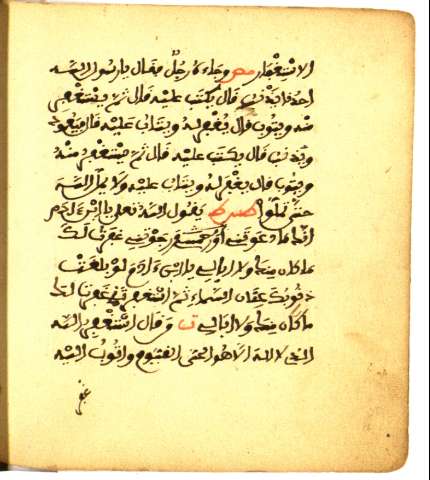 الاستغفار مص وجاءه رجل فقال يا رسول الله
احدنا يذنب قال يكتب عليه قال ثم يستغفر
منه ويتوب قال يغفر له ويتاب عليه قال فيعود
ويذنب قال يكتب عليه قال ثم يستغفر منه
ويتوب قال يغفر له ويتاب عليه ولا يمل الله
حتى تملوا يقول الله تعلى يا ابن ءادم
انك ما دعوتني ورجوتني غفرت لك
ما كان منك ولا ابالي يا ابن ءادم لو بلغت
ذنوبك عنان السماء ثم استغفرتني غفرت لك
ما كان منك ولا ابالي ت وقال استغفر الله
الذي لا اله الا هو الحي القيوم واتوب اليه